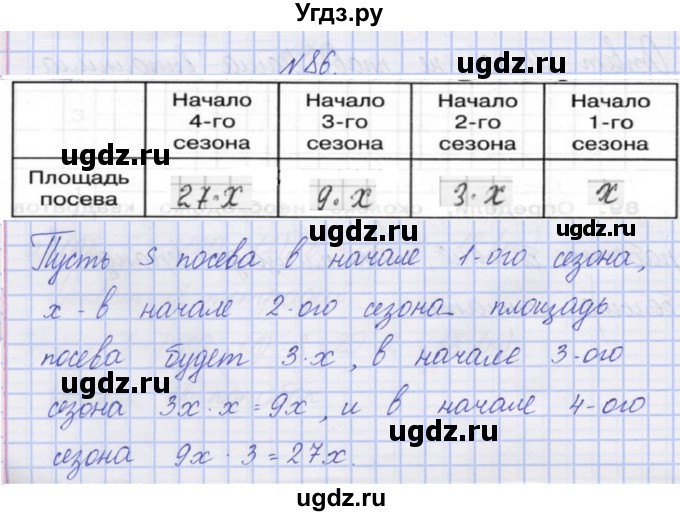 Угдз.ру
N 86.
Начало 4-го сезона | Начало 3-го сезона | Начало 2-го сезона | Начало 1-го сезона
Площадь посева | 27·x | 9·x | 3·x | x
Пусть S посева в начале 1-ого сезона,
x - в начале 2-ого сезона площадь
посева будет 3·x, в начале 3-ого
сезона 3x·x=9x, и в начале 4-ого
сезона 9x·3=27x.
ugdz.ru
ugdz.ru
ugdz.ru
ugdz.ru
ugdz.ru
ugdz.ru
ugdz.ru
ugdz.ru
ugdz.ru
ugdz.ru
ugdz.ru